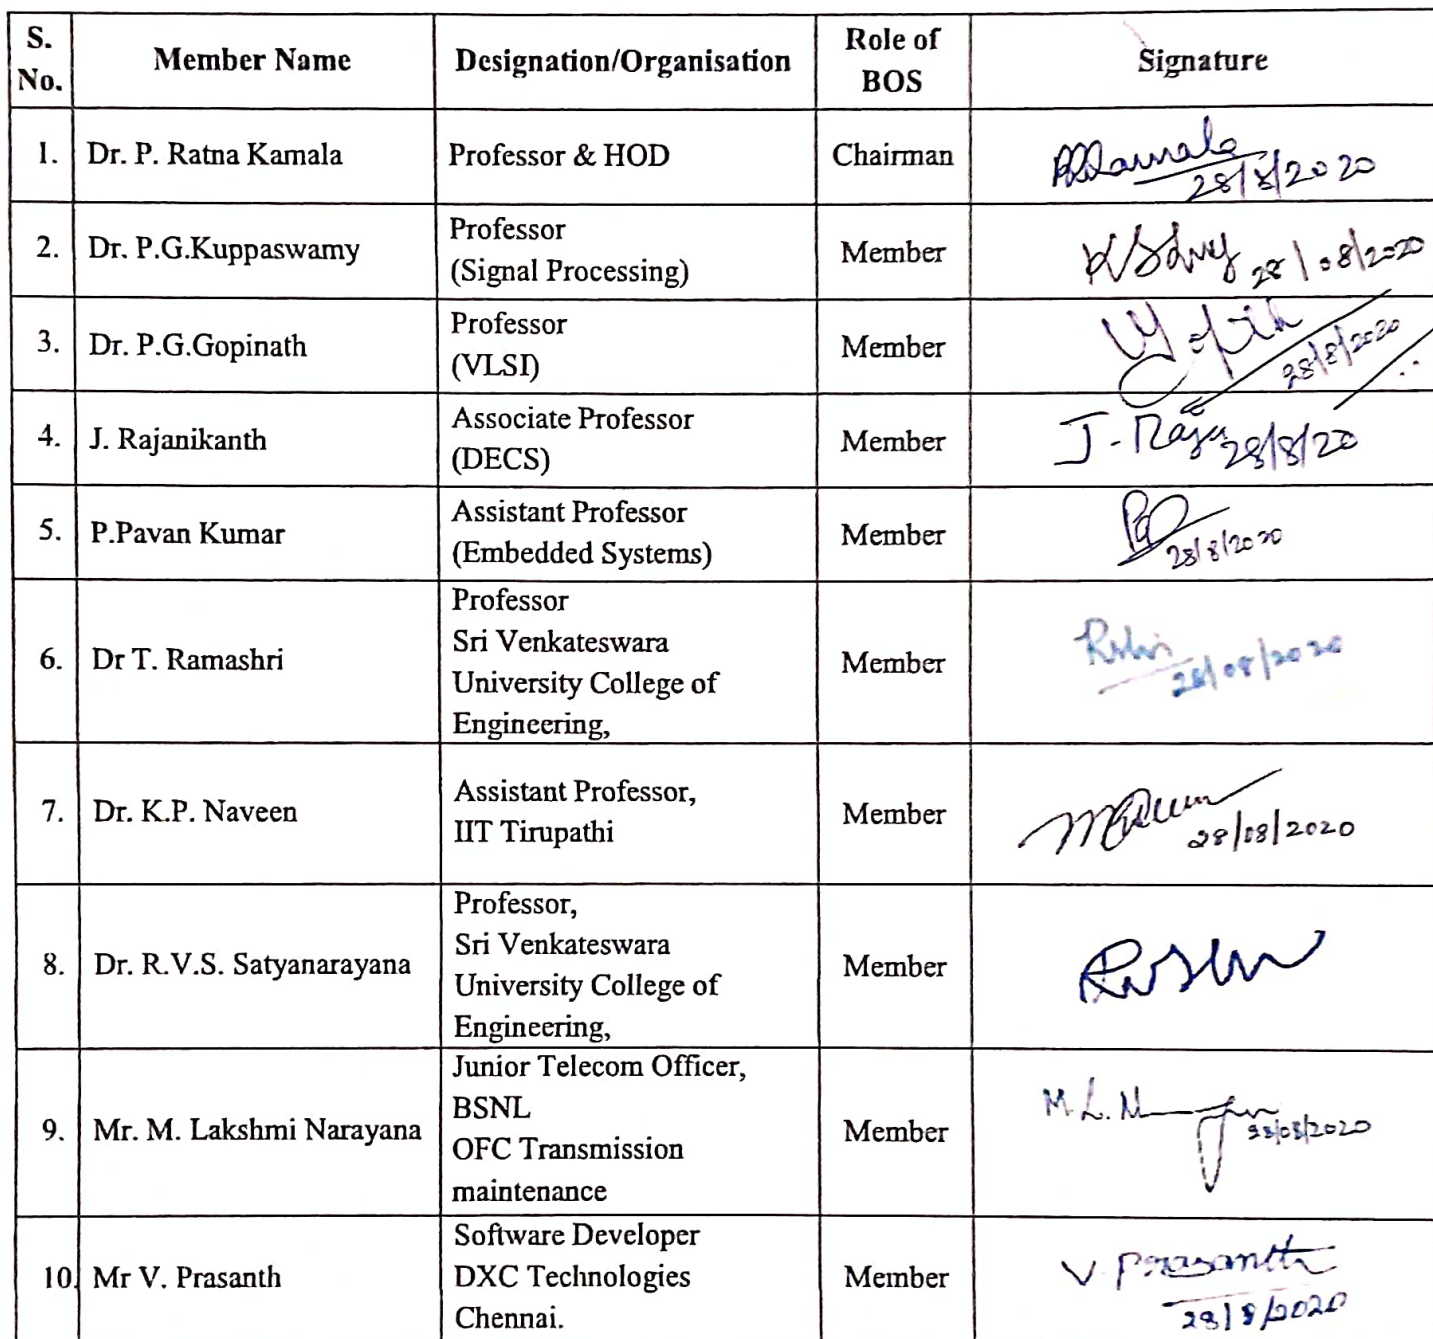 S. No. Member Name Designation/Organisation Role of BOS Signature
1. Dr. P. Ratna Kamala Professor & HOD Chairman
28/8/2020
2. Dr. P.G.Kuppaswamy Professor
(Signal Processing) Member 28/08/2020
3. Dr. P.G.Gopinath Professor
(VLSI) Member 28/8/2020
4. J. Rajanikanth Associate Professor
(DECS) Member 28/8/20
5. P.Pavan Kumar Assistant Professor
(Embedded Systems) Member 28/8/2020
6. Dr T. Ramashri Professor
Sri Venkateswara
University College of
Engineering, Member 28/08/2020
7. Dr. K.P. Naveen Assistant Professor,
IIT Tirupathi Member 28/08/2020
8. Dr. R.V.S. Satyanarayana Professor,
Sri Venkateswara
University College of
Engineering, Member
9. Mr. M. Lakshmi Narayana Junior Telecom Officer,
BSNL
OFC Transmission
maintenance Member 28/08/2020
10. Mr V. Prasanth Software Developer
DXC Technologies
Chennai. Member V. Prasanth
28/8/2020